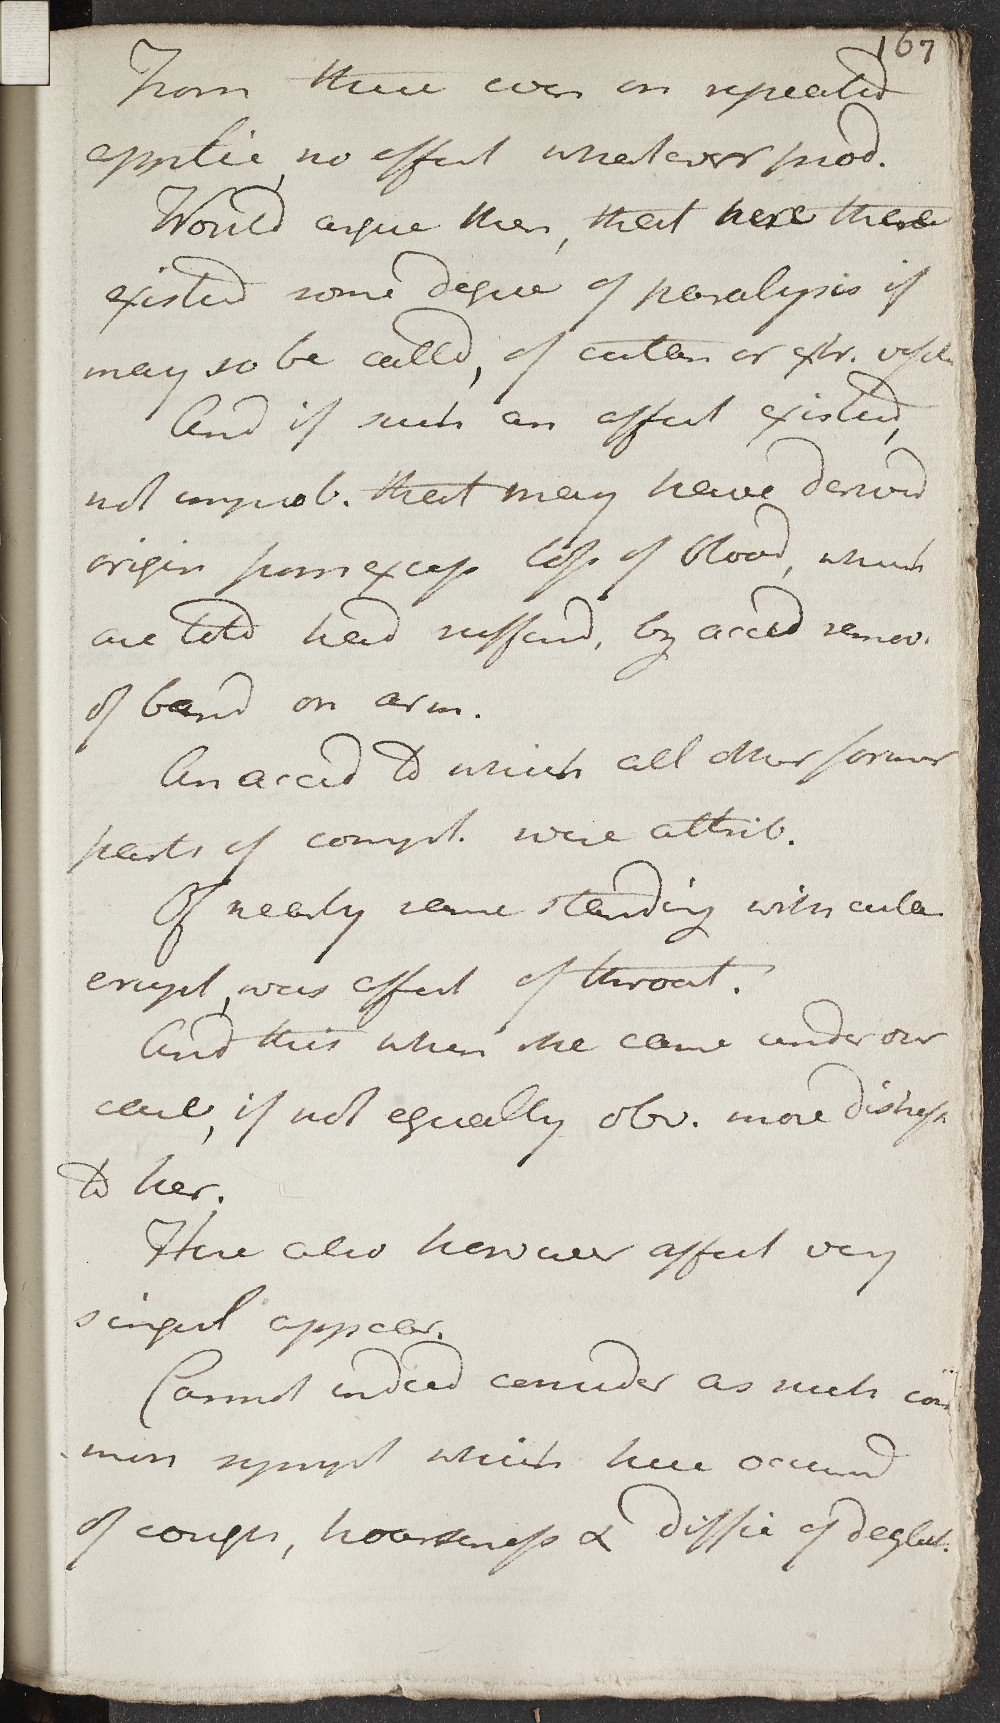 167
From these even on repeated
applic, no effect whatever prod.
Would argue then, that here there
existed some degree of paralysis if
may so be called, of cutan or extr. vessels
And if such an affect existed,
not improb. that may have derived
origin from excess loss of blood, which
are told had suffered, by acced remov.
of band on arm.
An acced to which all other former
parts of compl. were attrib.
Of nearly same standing with cutan
erupt, was affect of throat.
And this when she came under our
care, if not equally obv. more distress
to her.
Here also however affect very
singul appear.
Cannot indeed consider as such com
mon sympt which here occurred
of cough, hoarseness & diffic of deglut.